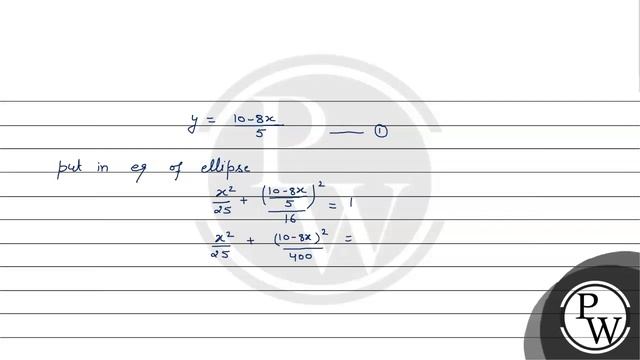 y = (10-8x)/5 —— ①
put in eq of ellipse
x²/25 + ((10-8x)/5)²/16 = 1
x²/25 + (10-8x)²/400 =
P
W
P
W